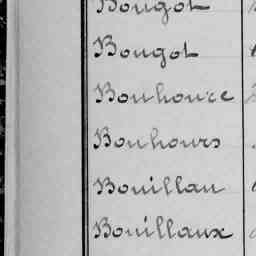 Bougot
Bougot
Bouhource
Bouhours
Bouillau
Bouillaux